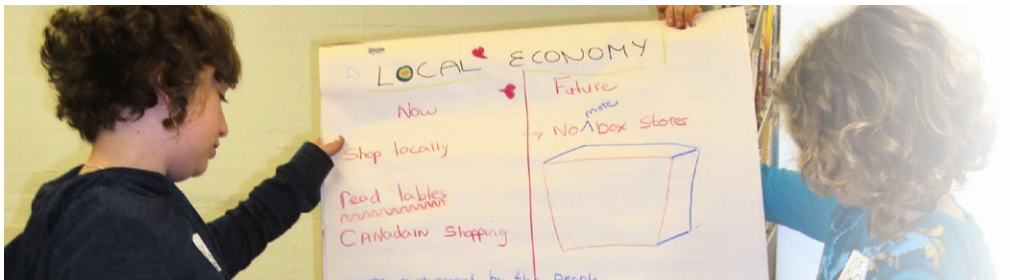 LOCAL ECONOMY
Now
Shop locally
read lables
CANADAIN Shopping
Future
more
→ No ^ box stores
by the People